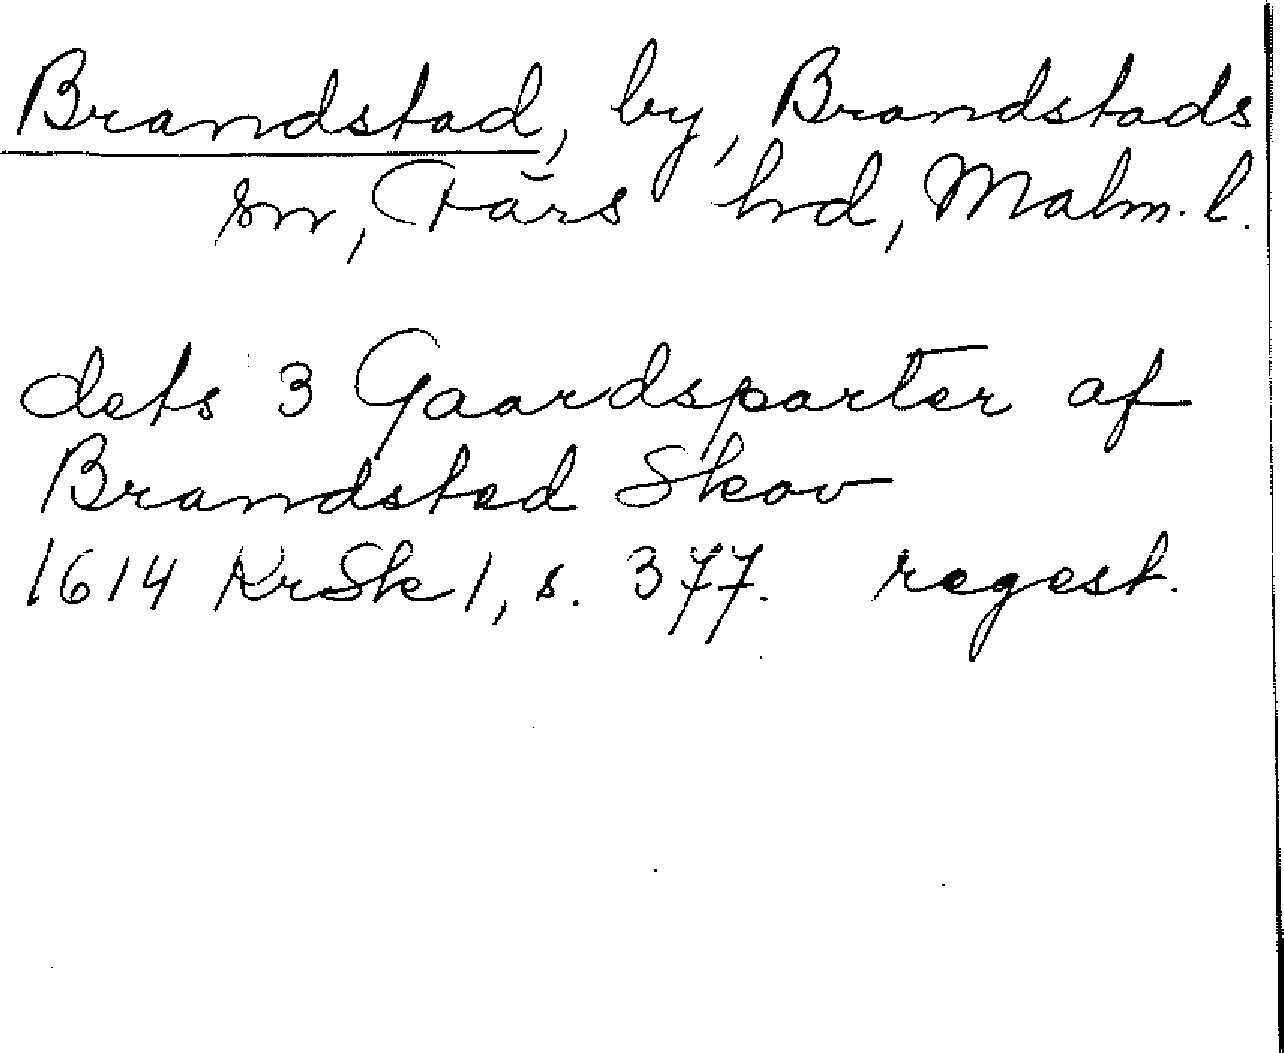 Brandstad, by, Brandstads
sn, Färs hd, Malm. l.
dets 3 Gaardsparter af
Brandsted Skov
1614 KrSk 1, s. 377. regest.